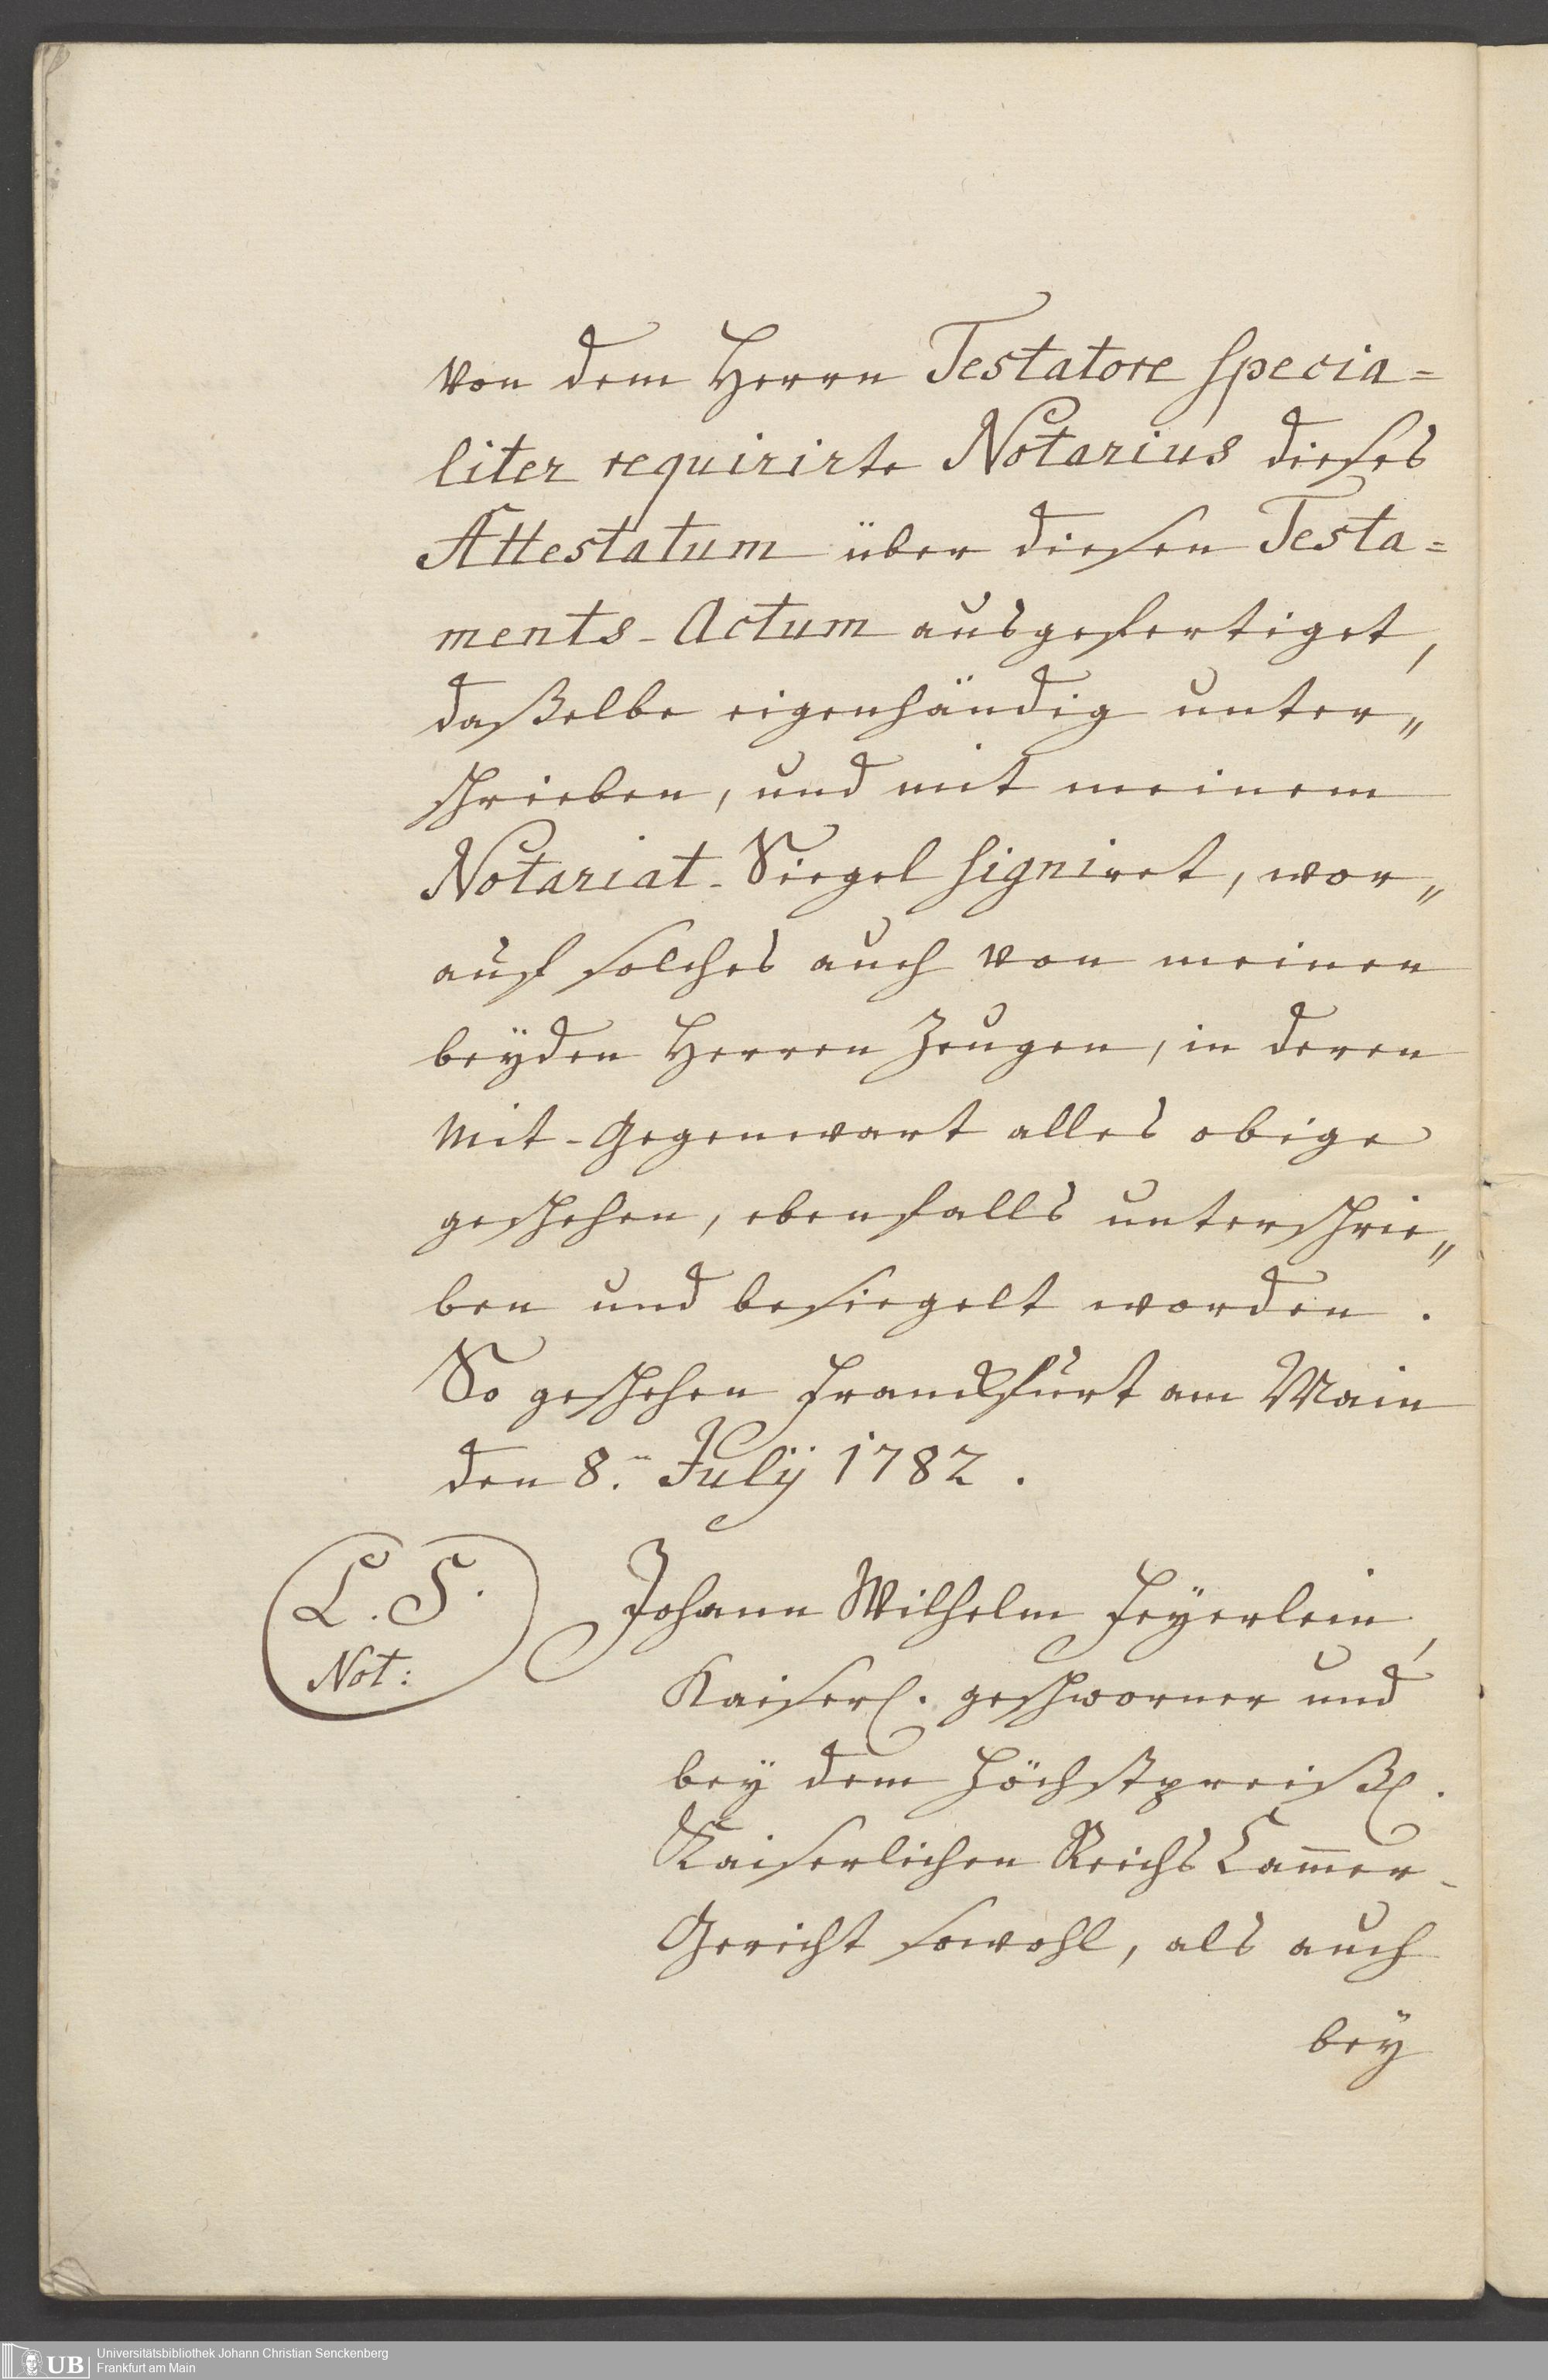 von dem Herrn Testatore specia=
liter requirirte Notarius dieses
Attestatum über diesen Testa=
ments-Actum ausgefertiget,
daßelbe eigenhändig unter„
schrieben, und mit meinem
Notariat-Siegel signiret, wor„
auf solches auch von meinen
beÿden Herren Zeugen, in deren
Mit-Gegenwart alles obige
geschehen, ebenfalls unterschrie„
ben und besiegelt worden.
So geschehen Franckfurt am Main
den 8.n Julÿ 1782.
L. S.
Not:
Johann Wilhelm Feÿerlein,
Kaiserl. geschworner und
beÿ dem Höchstpreißl.
Kaiserlichen Reichs Cam̅er-
Gericht sowohl, als auch
beÿ
UB
Universitätsbibliothek Johann Christian Senckenberg
Frankfurt am Main